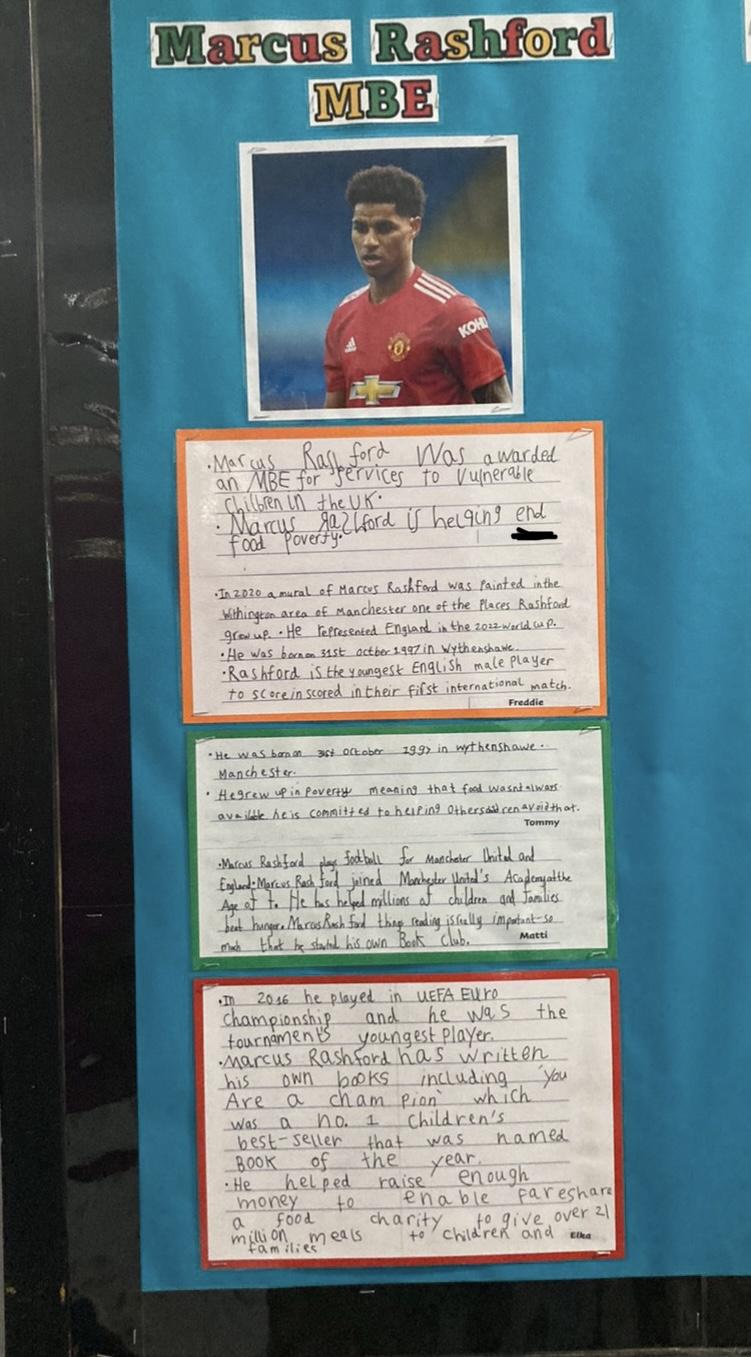 Marcus Rashford
MBE
KOHL
adidas
·Marcus Rashford Was awarded
an MBE for services to Vulnerable
children in the UK.
· Marcus Rashford is helping end
food Poverty.
·In 2020 a mural of Marcus Rashford was Painted in the
Withington area of Manchester one of the Places Rashford
grew up. · He represented England in the 2022 world cup.
· He was born on 31st octber 1997 in Wythenshawe.
·Rashford is the youngest English male Player
to score in scored in their first international match.
Freddie
· He was born on 31st October 1997 in wythenshawe.
Manchester.
· He grew up in Poverty meaning that food wasnt always
available he is committed to helping others avoid that.
Tommy
·Marcus Rashford plays football for Manchester United and
England. Marcus Rashford joined Manchester United's Academy at the
Age of 7. He has helped millions of children and families
beat hunger. Marcus Rashford things reading is really important-so
much that he started his own Book club.
Matti
·In 2016 he played in UEFA Euro
championship and he was the
tournament's youngest Player.
·Marcus Rashford has written
his own books including 'You
Are a champion' which
was a no. 1 children's
best-seller that was named
BOOK of the year.
·He helped raise enough
money to enable fareshare
a food charity to give over 21
million meals to children and
families
Elka